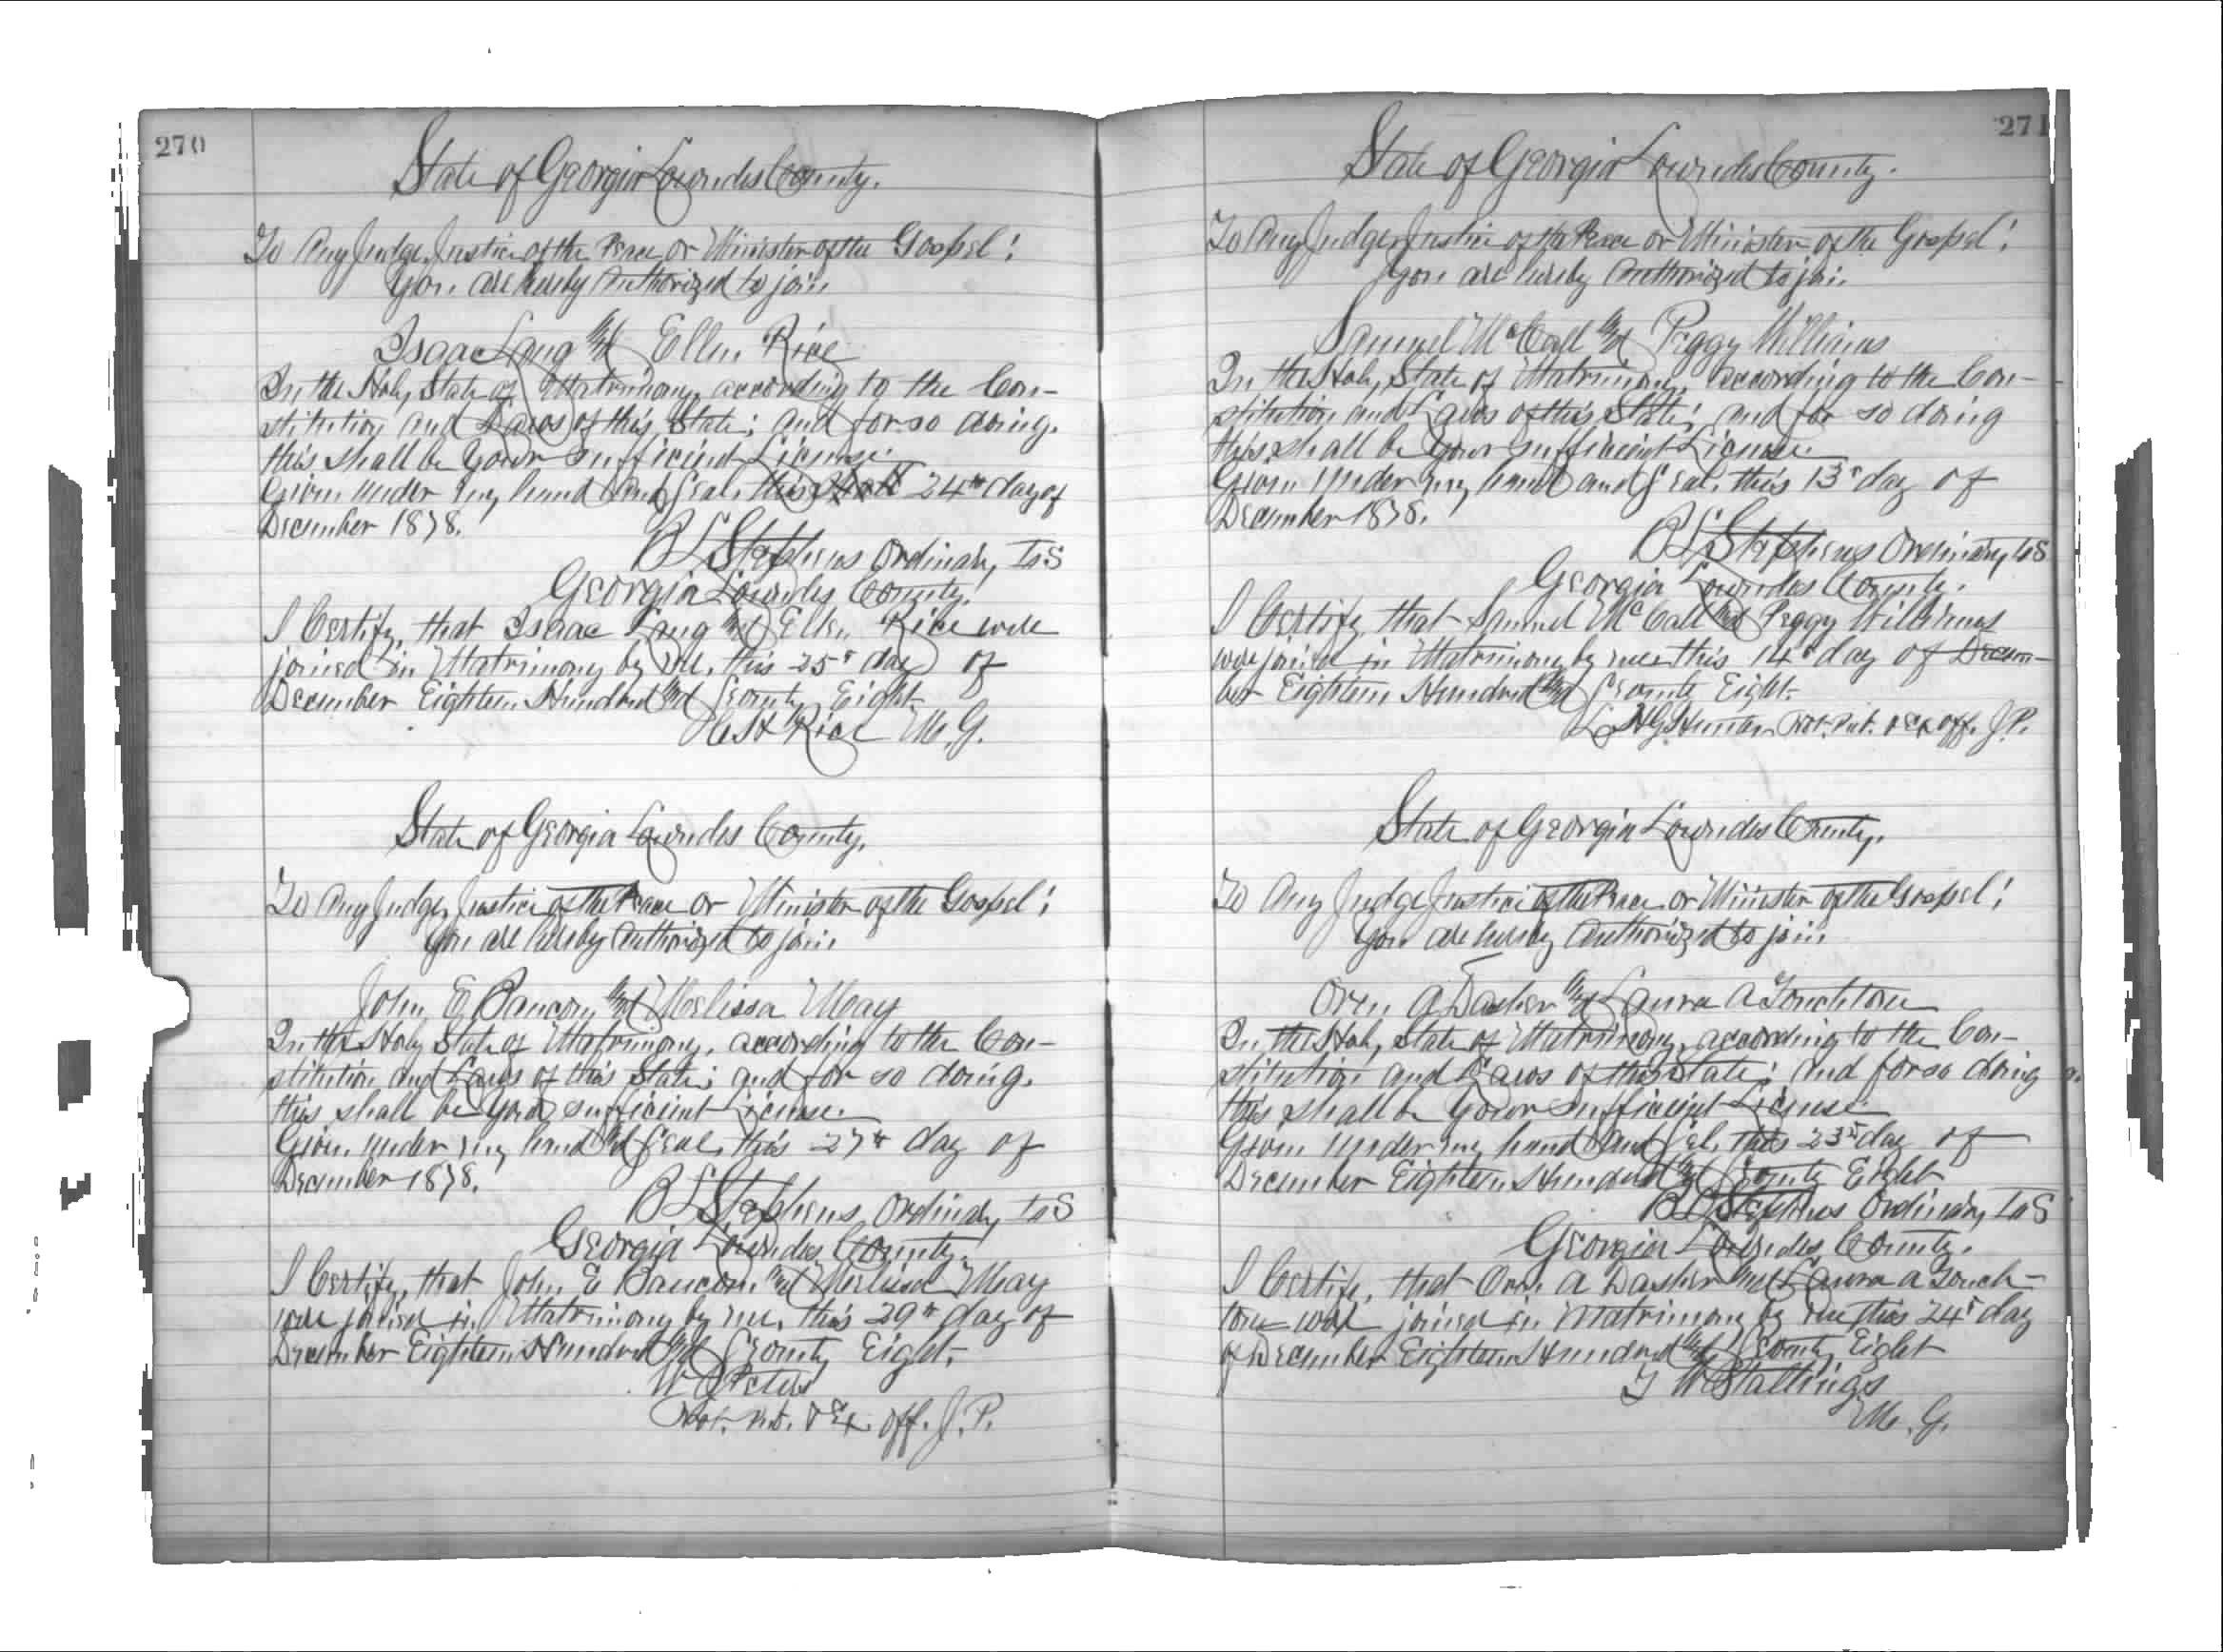 270
State of Georgia Lowndes County.
To Any Judge, Justice of the Peace or Minister of the Gospel:
You are hereby Authorized to join
Isaac Lang and Ellen Rice
In the Holy State of Matrimony, according to the Con-
stitution and Laws of this State; and for so doing.
this shall be your sufficient License.
Given under my hand and Seal, this 24th day of
December 1878.
B L Stephens Ordinary, L.S
Georgia Lowndes County.
I Certify, that Isaac Lang and Ellen Rice were
joined in Matrimony by me, this 25th day of
December Eighteen Hundred and Seventy Eight.
Rice M. G.
State of Georgia Lowndes County,
To Any Judge, Justice of the Peace or Minister of the Gospel:
You are hereby Authorized to join
John E Bancom and Melissa May
In the Holy State of Matrimony, according to the Con-
stitution and Laws of this State; and for so doing.
this shall be your sufficient License.
Given under my hand and Seal, this 27th day of
December 1878.
B L Stephens, Ordinary L.S
Georgia Lowndes County.
I Certify, that John E Bancom and Melissa May
were joined in Matrimony by me, this 29th day of
December Eighteen Hundred and Seventy Eight.
W Peters
Not. Pub. & Ex. off. J. P.
271
State of Georgia Lowndes County.
To Any Judge, Justice of the Peace or Minister of the Gospel:
You are hereby Authorized to join
Samuel McCall and Peggy Williams
In the Holy State of Matrimony, according to the Con-
stitution and Laws of this State; and for so doing
this shall be your sufficient License.
Given under my hand and Seal, this 13th day of
December 1878.
B L Stephens Ordinary, L.S
Georgia Lowndes County.
I Certify, that Samuel McCall and Peggy Williams
were joined in Matrimony by me this 14th day of Decem-
ber Eighteen Hundred and Seventy Eight.
Hunter Not. Pub. & Ex off. J. P.
State of Georgia Lowndes County.
To Any Judge Justice of the Peace or Minister of the Gospel:
You are hereby Authorized to join
Oren A Dasher and Laura A Touchtone
In the Holy State of Matrimony, according to the Con-
stitution and Laws of this State; and for so doing
this shall be your sufficient License.
Given under my hand and Seal, this 23rd day of
December Eighteen Hundred and Seventy Eight
B L Stephens Ordinary, L.S
Georgia Lowndes County.
I Certify, that Oren A Dasher and Laura A Touch-
tone were joined in Matrimony by me this 24th day
of December Eighteen Hundred and Seventy Eight
T W Stallings
M. G.